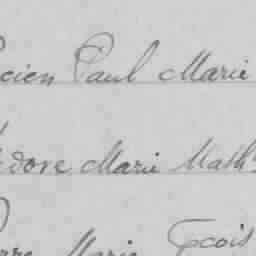 cien Paul Marie
dore Marie Math
Marie Fçois